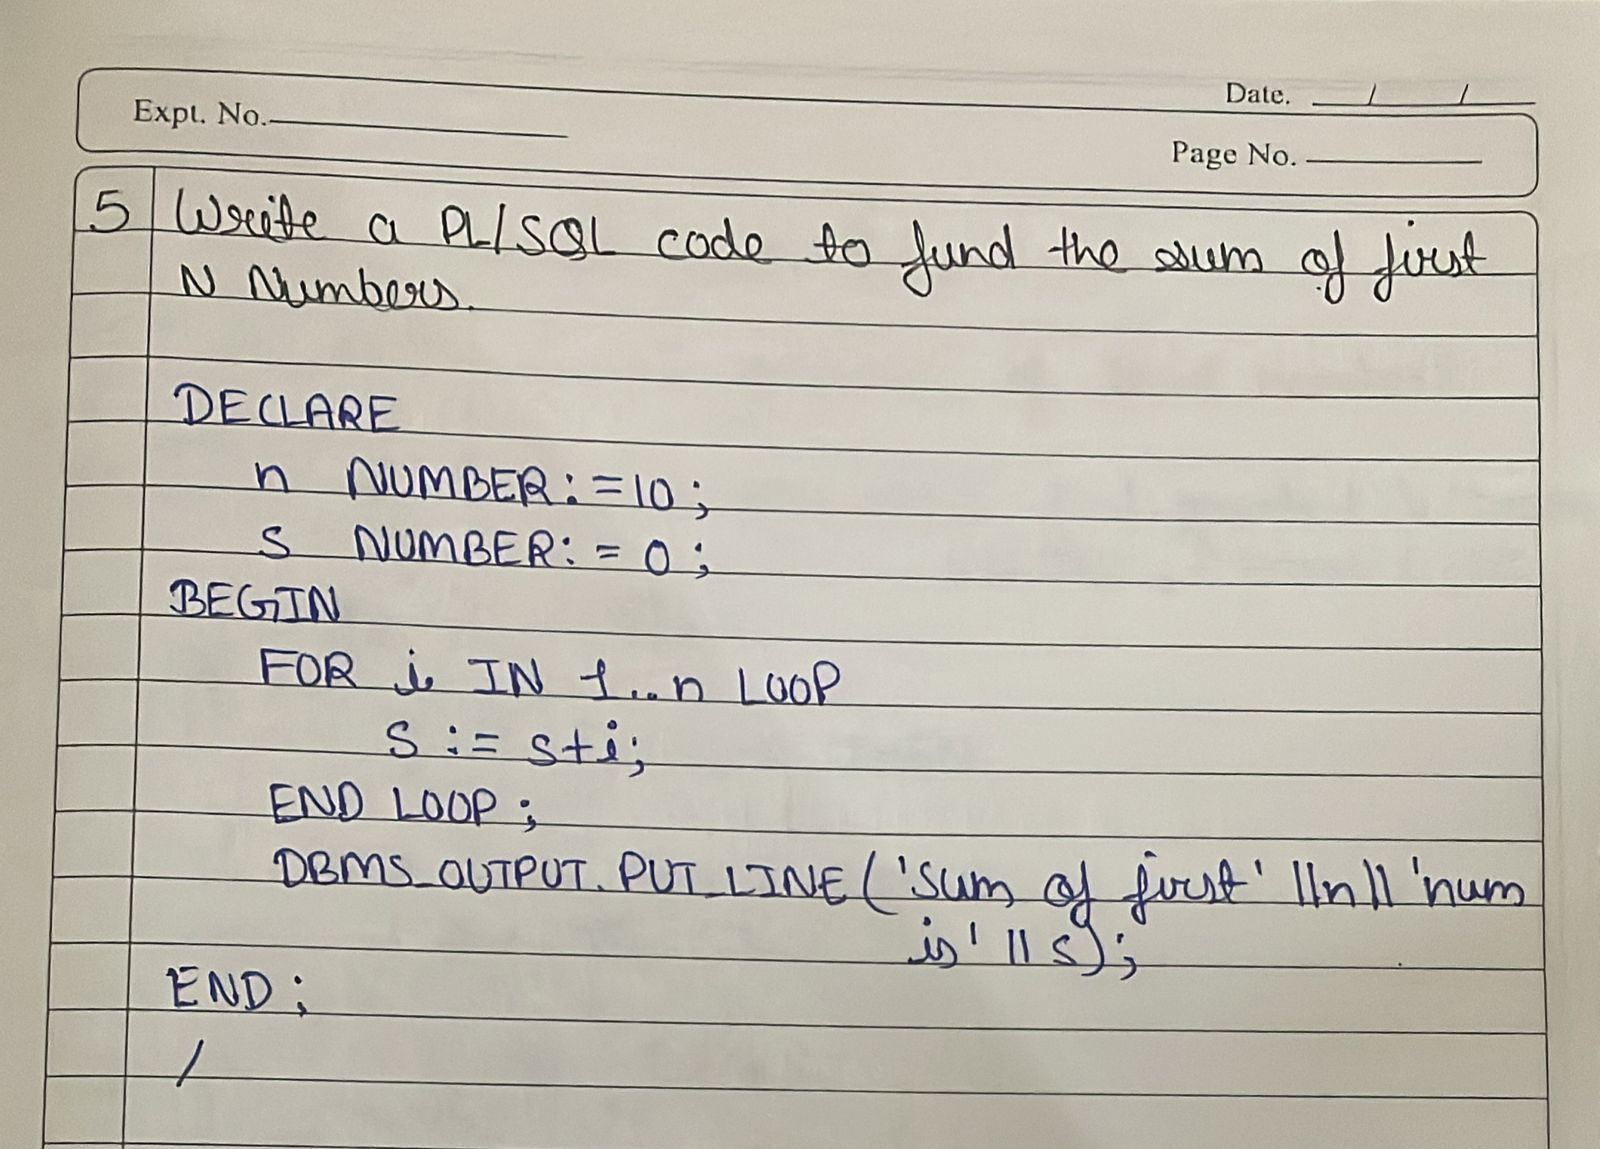 Date. / /
Expt. No.
Page No.
5 Write a PL/SQL code to fund the sum of first
N Numbers.
DECLARE
n NUMBER:=10;
s NUMBER:= 0;
BEGIN
FOR i IN 1..n LOOP
s := s+i;
END LOOP;
DBMS_OUTPUT.PUT_LINE('Sum of first' ||n|| 'num
is' || s);
END;
/